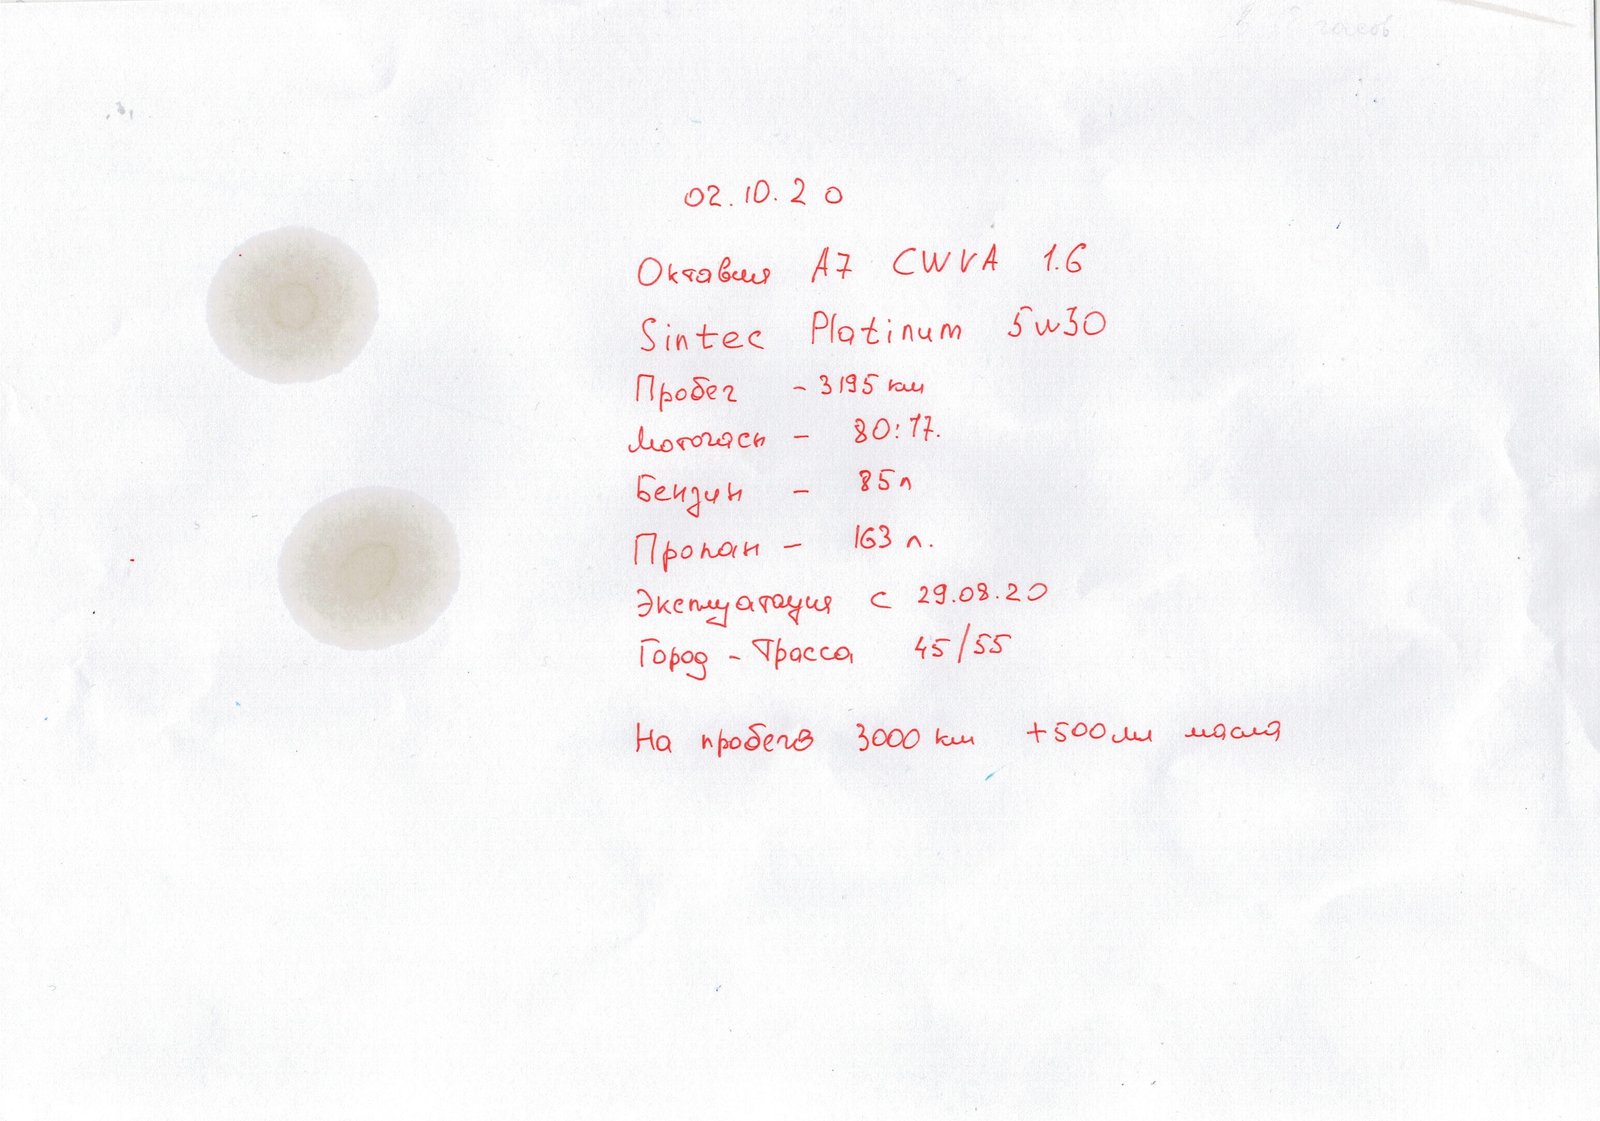 02.10.20
Октавия А7 CWVA 1.6
Sintec Platinum 5w30
Пробег - 3195 км
Моточасы - 80:17.
Бензин - 85л
Пропан - 163 л.
Эксплуатация с 29.08.20
Город - Трасса 45/55
На пробеге 3000 км +500мл масла
часов